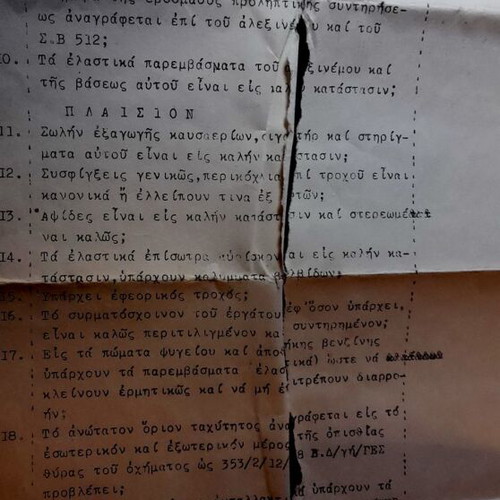 προληπτικῆς συντηρήσε-
ως ἀναγράφεται ἐπί τοῦ ἀλεξινέμου καί τοῦ
Σ.Β 512;
10. Τά ἐλαστικά παρεμβάσματα τοῦ ἀλεξινέμου καί
τῆς βάσεως αὐτοῦ εἶναι εἰς καλήν κατάστασιν;
ΠΛΑΙΣΙΟΝ
11. Σωλήν ἐξαγωγῆς καυσαερίων, σιγαστήρ καί στηρίγ-
ματα αὐτοῦ εἶναι εἰς καλήν κατάστασιν;
12. Συσφίγξεις γενικῶς, περικόχλια ἐπί τροχοῦ εἶναι
κανονικά ἤ ἐλλείπουν τινα ἐξ αὐτῶν;
13. Ἀψίδες εἶναι εἰς καλήν κατάστασιν καί στερεωμέ
ναι καλῶς;
14. Τά ἐλαστικά ἐπίσωτρα εὑρίσκονται εἰς καλήν κα-
τάστασιν, ὑπάρχουν καλύμματα βαλβίδων;
15. Ὑπάρχει ἐφεδρικός τροχός;
16. Τό συρματόσχοινον τοῦ ἐργάτου ἐφ' ὅσον ὑπάρχει,
εἶναι καλῶς περιτιλιγμένον καί συντηρημένον;
17. Εἰς τά πώματα ψυγείου καί ἀποθήκης βενζίνης
ὑπάρχουν τά παρεμβάσματα ἐλαστικά) ὥστε νά
κλείνουν ἑρμητικῶς καί νά μή ἐπιτρέπουν διαρρο-
ήν;
18. Τό ἀνώτατον ὅριον ταχύτητος ἀναγράφεται εἰς τό
ἐσωτερικόν καί ἐξωτερικόν μέρος τῆς ὀπισθίας
θύρας τοῦ ὀχήματος ὡς 353/2/12/ 8 Β.Δ/γή/ΓΕΣ
προβλέπει;
ὑπάρχουν τά